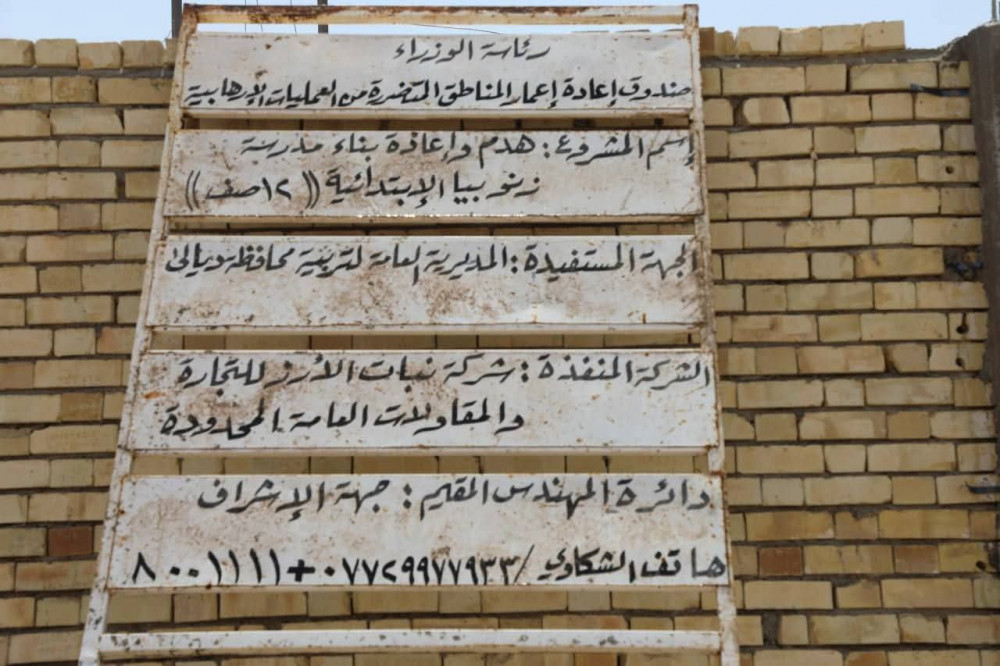 رئاسة الوزراء
صندوق إعادة إعمار المناطق المتضررة من العمليات الإرهابية
إسم المشروع : هدم وإعادة بناء مدرسة
زنوبيا الإبتدائية (( ١٢ صف ))
الجهة المستفيدة : المديرية العامة لتربية محافظة ديالى
الشركة المنفذة : شركة نبات الأرز للتجارة
والمقاولات العامة المحدودة
دائرة المهندس المقيم : جهة الإشراف
هاتف الشكاوي / ٠٧٧٢٩٩٧٧٩٣٣ + ٨٠٠١١١١